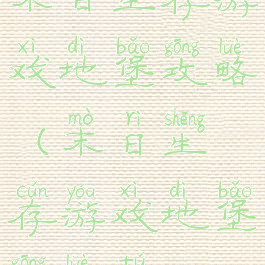 末日生存游
xì dì bǎo gōng lüè
戏地堡攻略
mò rì shēng
(末日生
cún yóu xì dì bǎo
存游戏地堡
gōng lüè tú